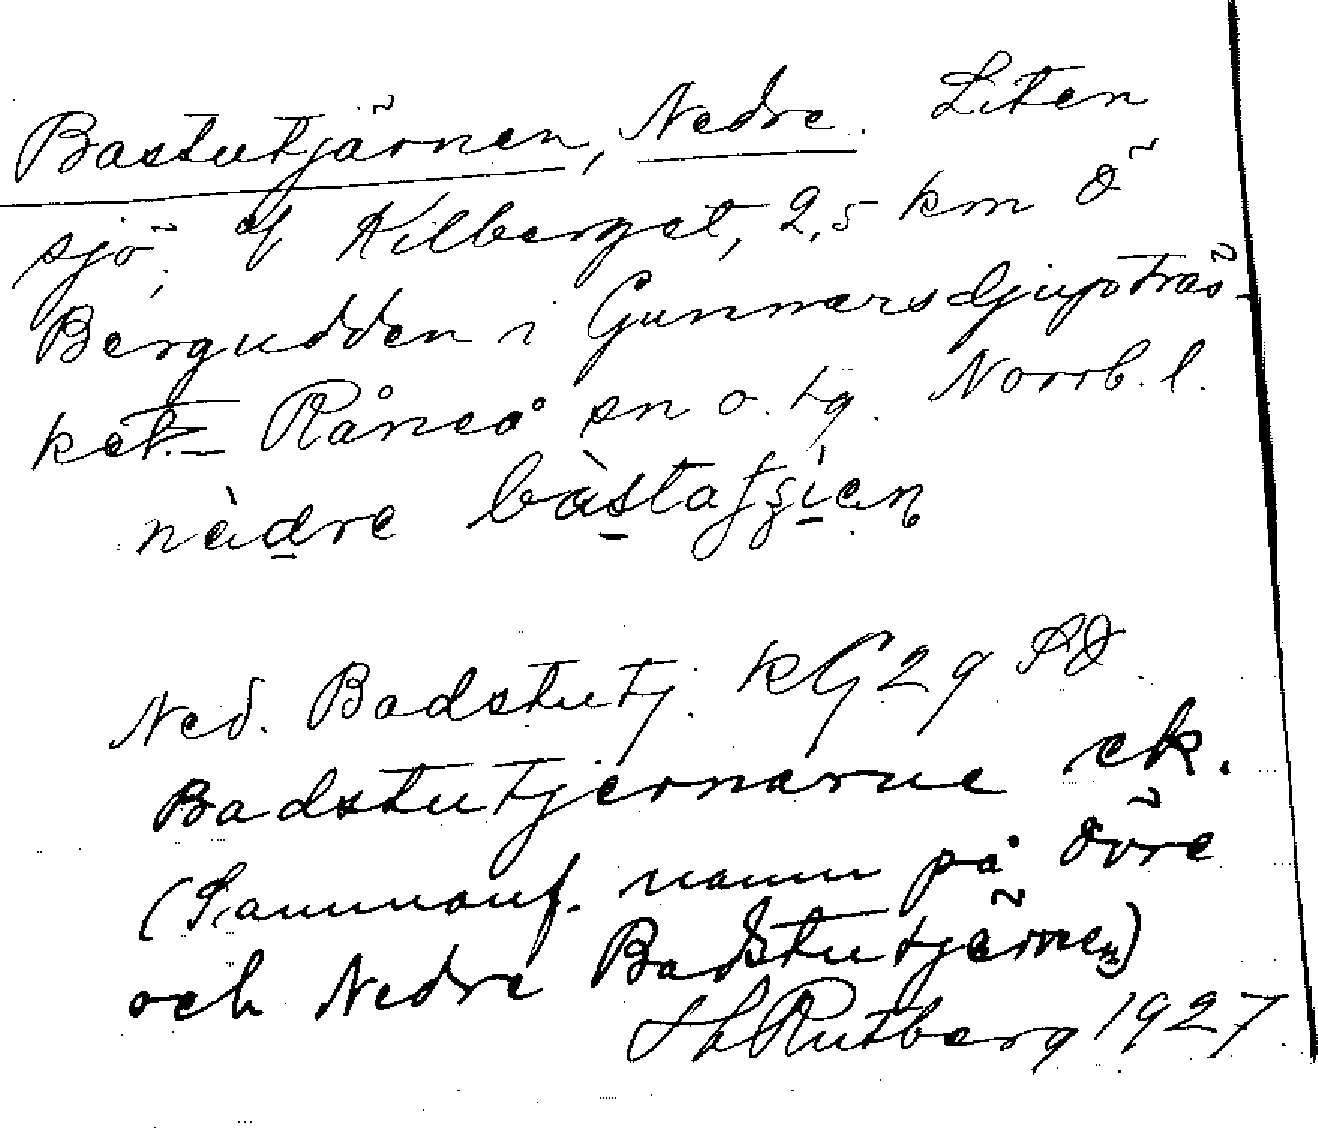 Bastutjärnen, Nedre. Liten
sjö, Kilberget, 2,5 km Ö
Bergudden i Gunnarsdjupträs-
ket. Råneå sn o. tg. Norrb. l.
nèdre bàstatʃi̱en
Ned. Badstutj. KG 29 SO
Badstutjernarne ek.
(Sammanf. namn på Övre
och Nedre Badstutjärnen)
H Rutberg 1927